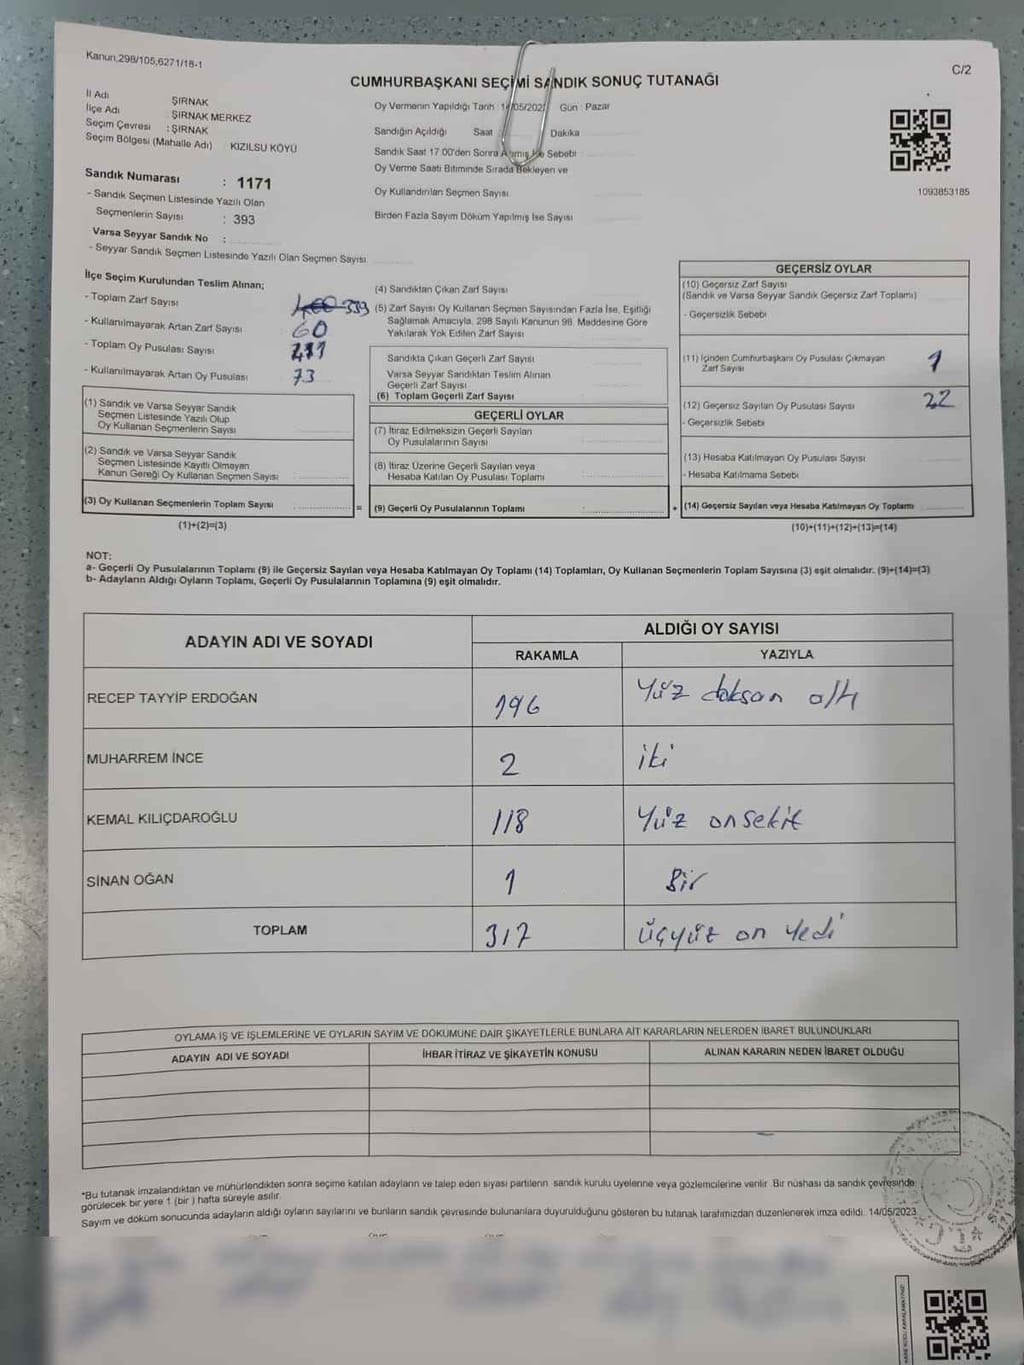 Kanun,298/105,6271/18-1
C/2
CUMHURBAŞKANI SEÇİMİ SANDIK SONUÇ TUTANAĞI
İl Adı ŞIRNAK
İlçe Adı : ŞIRNAK MERKEZ
Seçim Çevresi : ŞIRNAK
Seçim Bölgesi (Mahalle Adı) KIZILSU KÖYÜ
Sandık Numarası : 1171
- Sandık Seçmen Listesinde Yazılı Olan
Seçmenlerin Sayısı : 393
Varsa Seyyar Sandık No :
- Seyyar Sandık Seçmen Listesinde Yazılı Olan Seçmen Sayısı
Oy Vermenin Yapıldığı Tarih : 14/05/202 Gün : Pazar
Sandığın Açıldığı Saat Dakika
Sandık Saat 17:00'den Sonra Açmış İse Sebebi
Oy Verme Saati Bitiminde Sırada Bekleyen ve
Oy Kullandırılan Seçmen Sayısı
Birden Fazla Sayım Döküm Yapılmış İse Sayısı
1093853185
İlçe Seçim Kurulundan Teslim Alınan;
- Toplam Zarf Sayısı
- Kullanılmayarak Artan Zarf Sayısı 60
- Toplam Oy Pusulası Sayısı
- Kullanılmayarak Artan Oy Pusulası 73
(1) Sandık ve Varsa Seyyar Sandık
Seçmen Listesinde Yazılı Olup
Oy Kullanan Seçmenlerin Sayısı
(2) Sandık ve Varsa Seyyar Sandık
Seçmen Listesinde Kayıtlı Olmayan
Kanun Gereği Oy Kullanan Seçmen Sayısı
(3) Oy Kullanan Seçmenlerin Toplam Sayısı
(1)+(2)=(3)
(4) Sandıktan Çıkan Zarf Sayısı
(5) Zarf Sayısı Oy Kullanan Seçmen Sayısından Fazla İse, Eşitliği
Sağlamak Amacıyla, 298 Sayılı Kanunun 98. Maddesine Göre
Yakılarak Yok Edilen Zarf Sayısı
Sandıkta Çıkan Geçerli Zarf Sayısı
Varsa Seyyar Sandıktan Teslim Alınan
Geçerli Zarf Sayısı
(6) Toplam Geçerli Zarf Sayısı
GEÇERLİ OYLAR
(7) İtiraz Edilmeksizin Geçerli Sayılan
Oy Pusulalarının Sayısı
(8) İtiraz Üzerine Geçerli Sayılan veya
Hesaba Katılan Oy Pusulası Toplamı
= (9) Geçerli Oy Pusulalarının Toplamı
GEÇERSİZ OYLAR
(10) Geçersiz Zarf Sayısı
(Sandık ve Varsa Seyyar Sandık Geçersiz Zarf Toplamı)
- Geçersizlik Sebebi
(11) İçinden Cumhurbaşkanı Oy Pusulası Çıkmayan 1
Zarf Sayısı
(12) Geçersiz Sayılan Oy Pusulası Sayısı 22
- Geçersizlik Sebebi
(13) Hesaba Katılmayan Oy Pusulası Sayısı
- Hesaba Katılmama Sebebi
+ (14) Geçersiz Sayılan veya Hesaba Katılmayan Oy Toplamı
(10)+(11)+(12)+(13)=(14)
NOT:
a- Geçerli Oy Pusulalarının Toplamı (9) ile Geçersiz Sayılan veya Hesaba Katılmayan Oy Toplamı (14) Toplamları, Oy Kullanan Seçmenlerin Toplam Sayısına (3) eşit olmalıdır. (9)+(14)=(3)
b- Adayların Aldığı Oyların Toplamı, Geçerli Oy Pusulalarının Toplamına (9) eşit olmalıdır.
ADAYIN ADI VE SOYADI
ALDIĞI OY SAYISI
RAKAMLA YAZIYLA
RECEP TAYYİP ERDOĞAN 196 Yüz doksan altı
MUHARREM İNCE 2 iki
KEMAL KILIÇDAROĞLU 118 Yüz onsekiz
SİNAN OĞAN 1 Bir
TOPLAM 317 üçyüz on yedi
OYLAMA İŞ VE İŞLEMLERİNE VE OYLARIN SAYIM VE DÖKÜMÜNE DAİR ŞİKAYETLERLE BUNLARA AİT KARARLARIN NELERDEN İBARET BULUNDUKLARI
ADAYIN ADI VE SOYADI İHBAR İTİRAZ VE ŞİKAYETİN KONUSU ALINAN KARARIN NEDEN İBARET OLDUĞU
*Bu tutanak imzalandıktan ve mühürlendikten sonra seçime katılan adayların ve talep eden siyasi partilerin sandık kurulu üyelerine veya gözlemcilerine verilir. Bir nüshası da sandık çevresinde
görülecek bir yere 1 (bir) hafta süreyle asılır.
Sayım ve döküm sonucunda adayların aldığı oyların sayılarını ve bunların sandık çevresinde bulunanlara duyurulduğunu gösteren bu tutanak tarafımızdan düzenlenerek imza edildi. 14/05/2023